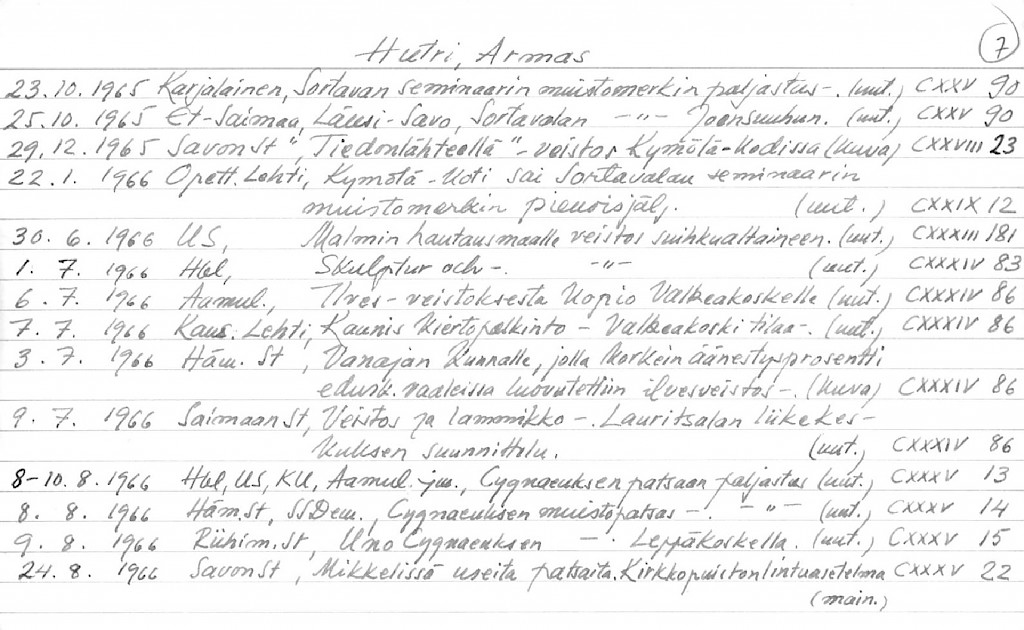 7
Hutri, Armas
23.10.1965 Karjalainen, Sortavan seminaarin muistomerkin paljastus -. (uut.) CXXV 90
25.10.1965 Et-Saimaa, Länsi-Savo, Sortavalan -"- Joensuuhun. (uut.) CXXV 90
29.12.1965 Savon St ", Tiedonlähteellä "- veistos Kymölä-Kodissa (kuva) CXXVIII 23
22.1. 1966 Opett. Lehti, Kymölä-Koti sai Sortavalan seminaarin
muistomerkin pienoisjälj. (uut.) CXXIX 12
30. 6. 1966 US, Malmin hautausmaalle veistos suihkualtaineen. (uut.) CXXXIII 181
1. 7. 1966 Hbl, Skulptur och -. -"- (uut.) CXXXIV 83
6. 7. 1966 Aamul., Ilves-veistoksesta kopio Valkeakoskelle (uut.) CXXXIV 86
7. 7. 1966 Kans. Lehti, Kaunis kiertopalkinto - Valkeakoski tilaa -. (uut.) CXXXIV 86
3. 7. 1966 Häm. St, Vanajan kunnalle, jolla korkein äänestysprosentti
edusk. vaaleissa luovutettiin ilvesveistos -. (kuva) CXXXIV 86
9. 7. 1966 Saimaan St, Veistos ja lammikko -. Lauritsalan liikekes-
kuksen suunnittelu. (uut.) CXXXIV 86
8-10. 8. 1966 Hbl, US, KU, Aamul. ym., Cygnaeuksen patsaan paljastus (uut.) CXXXV 13
8. 8. 1966 Häm. St, SSDem., Cygnaeuksen muistopatsas -. -"- (uut.) CXXXV 14
9. 8. 1966 Riihim. St, Uno Cygnaeuksen -. Leppäkoskella. (uut.) CXXXV 15
24. 8. 1966 Savon St, Mikkelissä useita patsaita. Kirkkopuiston lintuasetelma CXXXV 22
(main.)